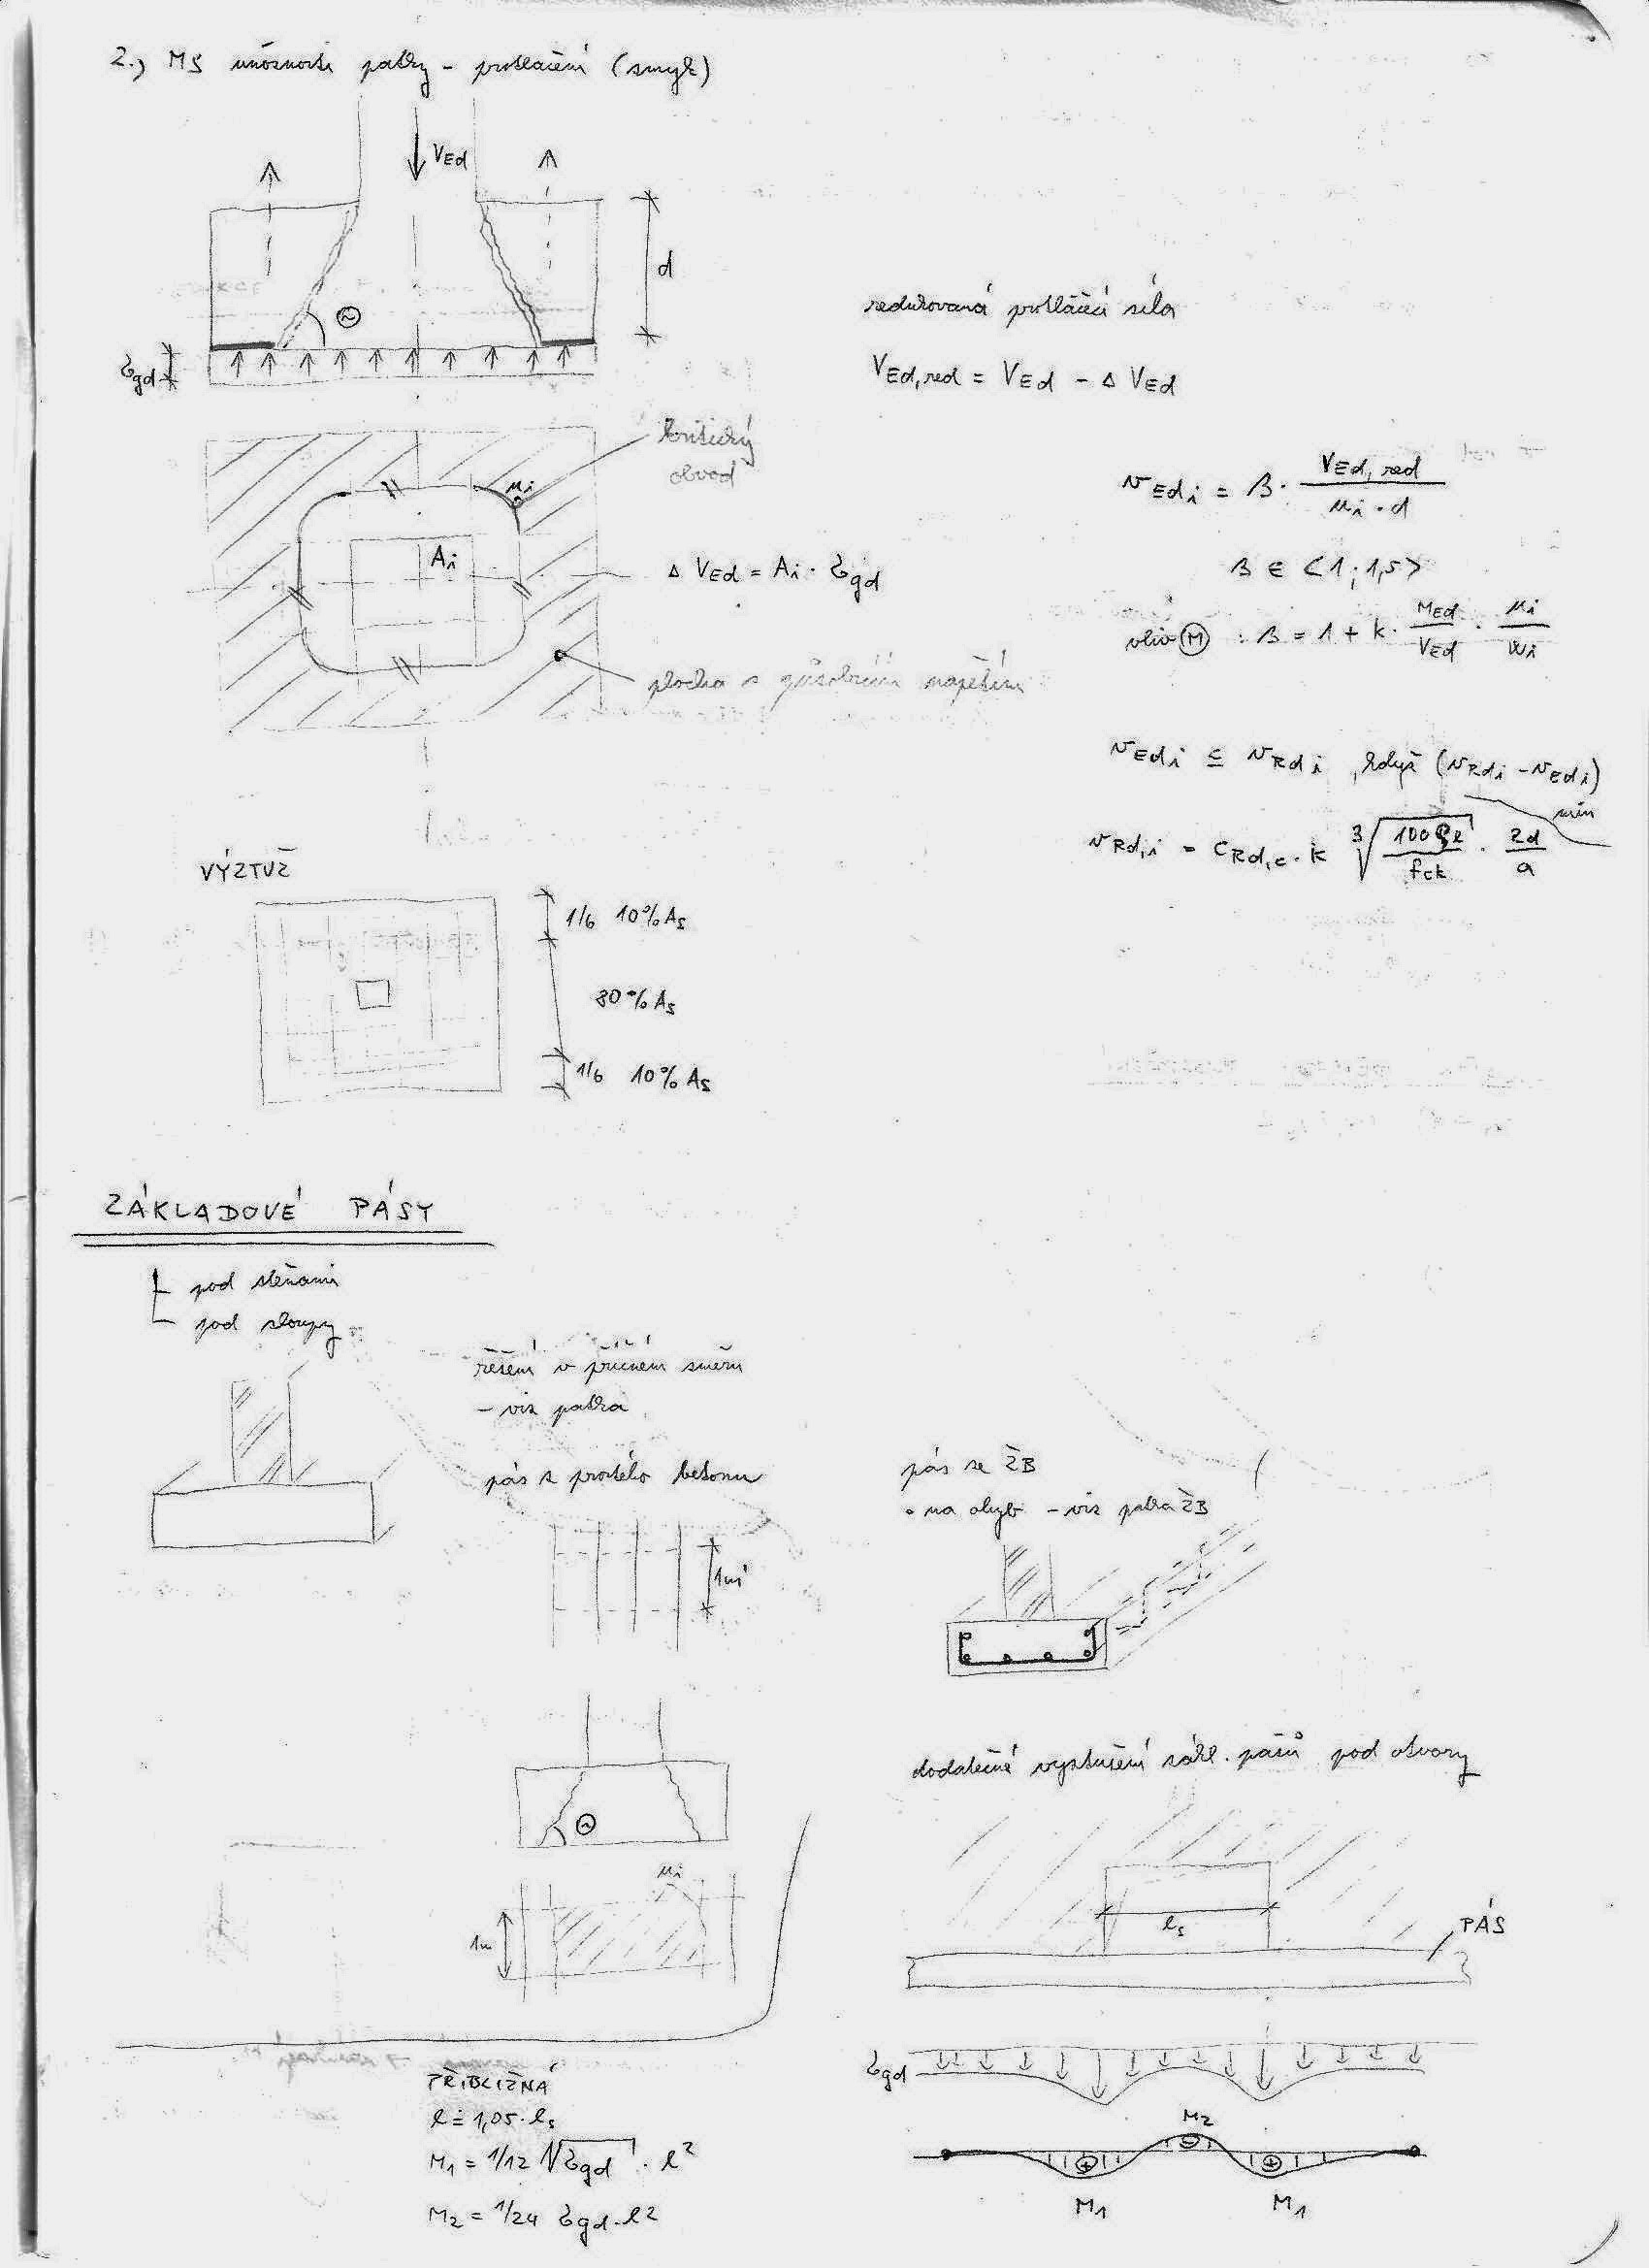 2.) MS únosnosti patky - protlačení (smyk)
VEd
d
σgd
redukovaná protláčecí síla
VEd,red = VEd - Δ VEd
kritický
obvod
ui
Ai
Δ VEd = Ai · σgd
plocha s působícím napětím
vEdi = β · VEd,red / ui · d
β ∈ <1; 1,5>
vliv M : β = 1 + k · MEd / VEd · ui / wi
vEdi ≤ vRdi , když (vRdi - vEdi) min
vRd,i = CRd,c · k ∛ 100 ρl / fck · 2d / a
VÝZTUŽ
1/6 10% As
80% As
1/6 10% As
ZÁKLADOVÉ PÁSY
pod stěnami
pod sloupy
řešení v příčném směru
- viz patka
pás z prostého betonu
1m'
pás ze ŽB
• na ohyb - viz patka ŽB
ui
1m
dodatečné vyztužení zákl. pásů pod otvory
ls
PÁS
σgd
M2
M1 M1
PŘIBLIŽNÁ
l ≐ 1,05 · ls
M1 = 1/12 √σgd · l²
M2 = 1/24 σgd · l²